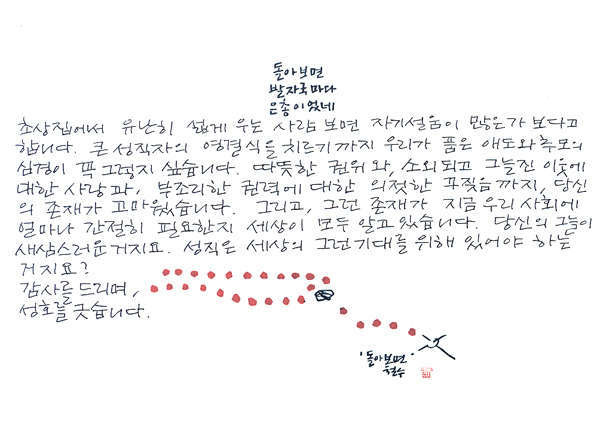 돌아보면
발자국마다
은총이었네
초상집에서 유난히 섧게 우는 사람 보면 자기설움이 많은가 보다고
합니다. 큰 성직자의 영결식을 치르기까지 우리가 품은 애도와 추모의
심경이 꼭 그렇지 싶습니다. 따뜻한 권위와, 소외되고 그늘진 이웃에
대한 사랑과, 부조리한 권력에 대한 의젓한 꾸짖음까지, 당신
의 존재가 고마웠습니다. 그리고, 그런 존재가 지금 우리 사회에
얼마나 간절히 필요한지 세상이 모두 알고 있습니다. 당신의 그늘이
새삼스러운거지요. 성직은 세상의 그런기대를 위해 있어야 하는
거지요?
감사를 드리며,
성호를 긋습니다.
'돌아보면'
철수